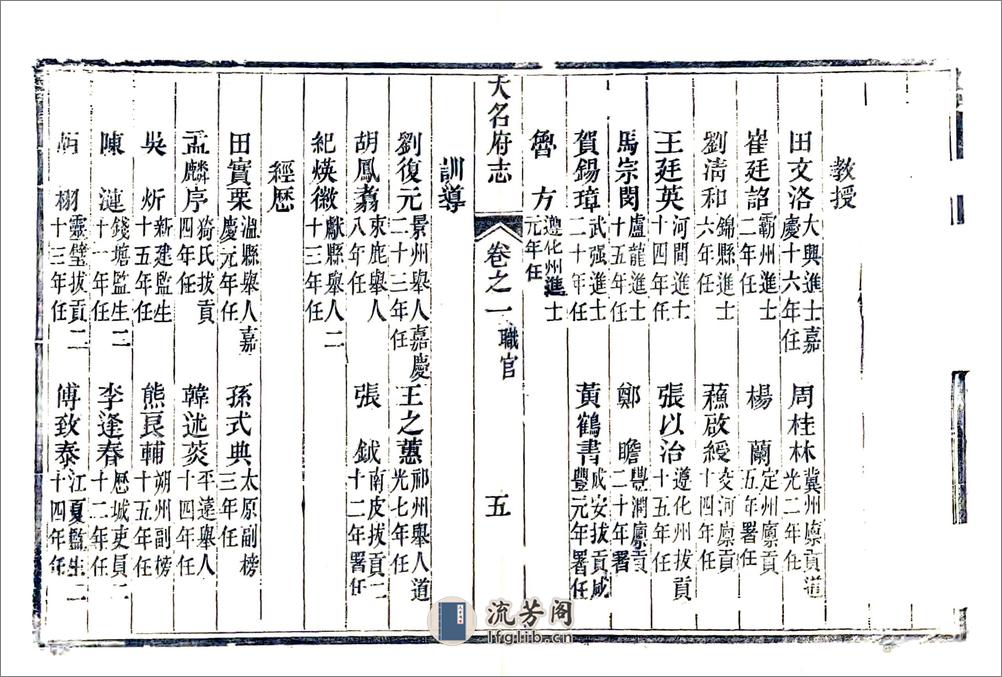 教授
田文洛 大興進士嘉慶十六年任 周桂林 冀州廪貢道光二年任
崔廷詔 霸州進士二年任 楊蘭 定州廪貢五年署任
劉清和 錦縣進士六年任 蘓啟綬 交河廪貢十四年任
王廷英 河間進士十四年任 張以治 遵化州拔貢十五年任
馬宗閔 盧龍進士十五年任 鄭瞻 豐潤廪貢二十年署任
賀錫璋 武强進士二十年任 黃鶴書 咸安拔貢咸豐元年署任
魯方 遵化州進士元年任
大名府志 卷之一 職官 五
訓導
劉復元 景州舉人嘉慶二十三年任 王之蕙 祁州舉人道光七年任
胡鳳翥 束鹿舉人八年任 張鉞 南皮拔貢二十二年署任
紀煐徽 獻縣舉人二十三年任
經歷
田實栗 溫縣舉人嘉慶元年任 孫式典 太原副榜三年任
孟麟序 猗氏拔貢四年任 韓述菼 平遠舉人十四年任
吳炘 新建監生十五年任 熊良輔 朔州副榜十五年任
陳漣 錢塘監生二十一年任 李逢春 歷城吏員二十二年任
栩 靈璧拔貢二十三年任 傅致泰 江夏監生二十四年任
流芳阁
lfglib.cn